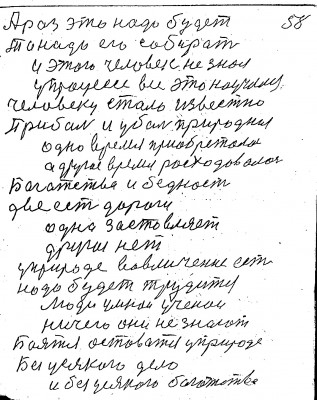 58
А раз это надо будет
То надо его собират
и этого человек не знал
у процесе все это научился
человеку стало известно
Прибал и убал природил
одно время приобреталос
а другое время расходовалос
Богатства и бедност
две ест дороги
одна заставляет
другая нет
у природе вовличение ест
надо будет трудится
Люди умной ученой
ничего они не знают
Боятся остоватся у природе
Без усякого дело
и без усякого богатства